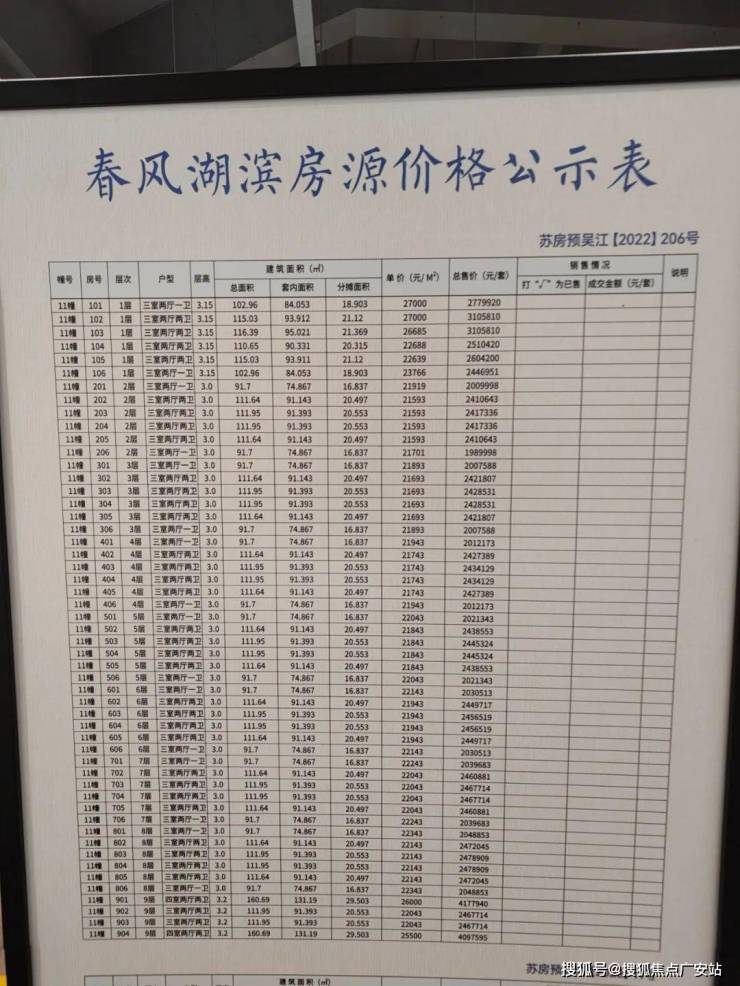 春风湖滨房源价格公示表
苏房预吴江【2022】206号
幢号 房号 层次 户型 层高 建筑面积(㎡) 单价(元/M²) 总售价(元/套) 销售情况 说明
总面积 套内面积 分摊面积 打“√”为已售 成交金额(元/套)
11幢 101 1层 三室两厅一卫 3.15 102.96 84.053 18.903 27000 2779920
11幢 102 1层 三室两厅两卫 3.15 115.03 93.912 21.12 27000 3105810
11幢 103 1层 三室两厅两卫 3.15 116.39 95.021 21.369 26685 3105810
11幢 104 1层 三室两厅两卫 3.15 110.65 90.331 20.315 22688 2510420
11幢 105 1层 三室两厅两卫 3.15 115.03 93.911 21.12 22639 2604200
11幢 106 1层 三室两厅一卫 3.15 102.96 84.053 18.903 23766 2446951
11幢 201 2层 三室两厅一卫 3.0 91.7 74.867 16.837 21919 2009998
11幢 202 2层 三室两厅两卫 3.0 111.64 91.143 20.497 21593 2410643
11幢 203 2层 三室两厅两卫 3.0 111.95 91.393 20.553 21593 2417336
11幢 204 2层 三室两厅两卫 3.0 111.95 91.393 20.553 21593 2417336
11幢 205 2层 三室两厅两卫 3.0 111.64 91.143 20.497 21593 2410643
11幢 206 2层 三室两厅一卫 3.0 91.7 74.867 16.837 21701 1989998
11幢 301 3层 三室两厅一卫 3.0 91.7 74.867 16.837 21893 2007588
11幢 302 3层 三室两厅两卫 3.0 111.64 91.143 20.497 21693 2421807
11幢 303 3层 三室两厅两卫 3.0 111.95 91.393 20.553 21693 2428531
11幢 304 3层 三室两厅两卫 3.0 111.95 91.393 20.553 21693 2428531
11幢 305 3层 三室两厅两卫 3.0 111.64 91.143 20.497 21693 2421807
11幢 306 3层 三室两厅一卫 3.0 91.7 74.867 16.837 21893 2007588
11幢 401 4层 三室两厅一卫 3.0 91.7 74.867 16.837 21943 2012173
11幢 402 4层 三室两厅两卫 3.0 111.64 91.143 20.497 21743 2427389
11幢 403 4层 三室两厅两卫 3.0 111.95 91.393 20.553 21743 2434129
11幢 404 4层 三室两厅两卫 3.0 111.95 91.393 20.553 21743 2434129
11幢 405 4层 三室两厅两卫 3.0 111.64 91.143 20.497 21743 2427389
11幢 406 4层 三室两厅一卫 3.0 91.7 74.867 16.837 21943 2012173
11幢 501 5层 三室两厅一卫 3.0 91.7 74.867 16.837 22043 2021343
11幢 502 5层 三室两厅两卫 3.0 111.64 91.143 20.497 21843 2438553
11幢 503 5层 三室两厅两卫 3.0 111.95 91.393 20.553 21843 2445324
11幢 504 5层 三室两厅两卫 3.0 111.95 91.393 20.553 21843 2445324
11幢 505 5层 三室两厅两卫 3.0 111.64 91.143 20.497 21843 2438553
11幢 506 5层 三室两厅一卫 3.0 91.7 74.867 16.837 22043 2021343
11幢 601 6层 三室两厅一卫 3.0 91.7 74.867 16.837 22143 2030513
11幢 602 6层 三室两厅两卫 3.0 111.64 91.143 20.497 21943 2449717
11幢 603 6层 三室两厅两卫 3.0 111.95 91.393 20.553 21943 2456519
11幢 604 6层 三室两厅两卫 3.0 111.95 91.393 20.553 21943 2456519
11幢 605 6层 三室两厅两卫 3.0 111.64 91.143 20.497 21943 2449717
11幢 606 6层 三室两厅一卫 3.0 91.7 74.867 16.837 22143 2030513
11幢 701 7层 三室两厅一卫 3.0 91.7 74.867 16.837 22243 2039683
11幢 702 7层 三室两厅两卫 3.0 111.64 91.143 20.497 22043 2460881
11幢 703 7层 三室两厅两卫 3.0 111.95 91.393 20.553 22043 2467714
11幢 704 7层 三室两厅两卫 3.0 111.95 91.393 20.553 22043 2467714
11幢 705 7层 三室两厅两卫 3.0 111.64 91.143 20.497 22043 2460881
11幢 706 7层 三室两厅一卫 3.0 91.7 74.867 16.837 22243 2039683
11幢 801 8层 三室两厅一卫 3.0 91.7 74.867 16.837 22343 2048853
11幢 802 8层 三室两厅两卫 3.0 111.64 91.143 20.497 22143 2472045
11幢 803 8层 三室两厅两卫 3.0 111.95 91.393 20.553 22143 2478909
11幢 804 8层 三室两厅两卫 3.0 111.95 91.393 20.553 22143 2478909
11幢 805 8层 三室两厅两卫 3.0 111.64 91.143 20.497 22143 2472045
11幢 806 8层 三室两厅一卫 3.0 91.7 74.867 16.837 22343 2048853
11幢 901 9层 四室两厅两卫 3.2 160.69 131.19 29.503 26000 4177940
11幢 902 9层 三室两厅两卫 3.2 111.95 91.393 20.553 22043 2467714
11幢 903 9层 三室两厅两卫 3.2 111.95 91.393 20.553 22043 2467714
11幢 904 9层 四室两厅两卫 3.2 160.69 131.19 29.503 25500 4097595
苏房预
建筑面积(㎡)
搜狐号@搜狐焦点广安站